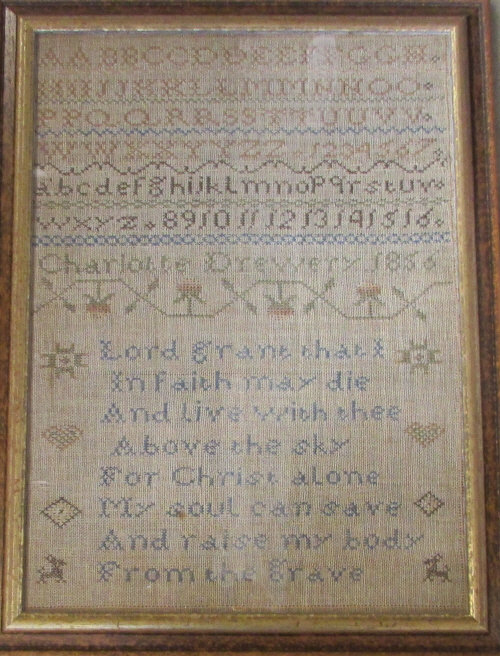 A A B B C C D D E E F F G G H
H I I J J K K L L M M N N O O
P P Q Q R R S S T T U U V V
W W X X Y Y Z Z 1 2 3 4 5 6 7
a b c d e f g h i j k l m n o p q r s t u v
w x y z 8 9 10 11 12 13 14 15 16
Charlotte Drewery 1856
Lord grant that I
In faith may die
And live with thee
Above the sky
For Christ alone
My soul can save
And raise my body
From the grave